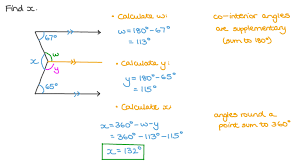 Find x.
67°
w
x
y
65°
• Calculate w:
w = 180° - 67°
= 113°
co-interior angles
are supplementary
(sum to 180°)
• Calculate y:
y = 180° - 65°
= 115°
• Calculate x:
x = 360° - w - y
= 360° - 113° - 115°
x = 132°
angles round a
point sum to 360°